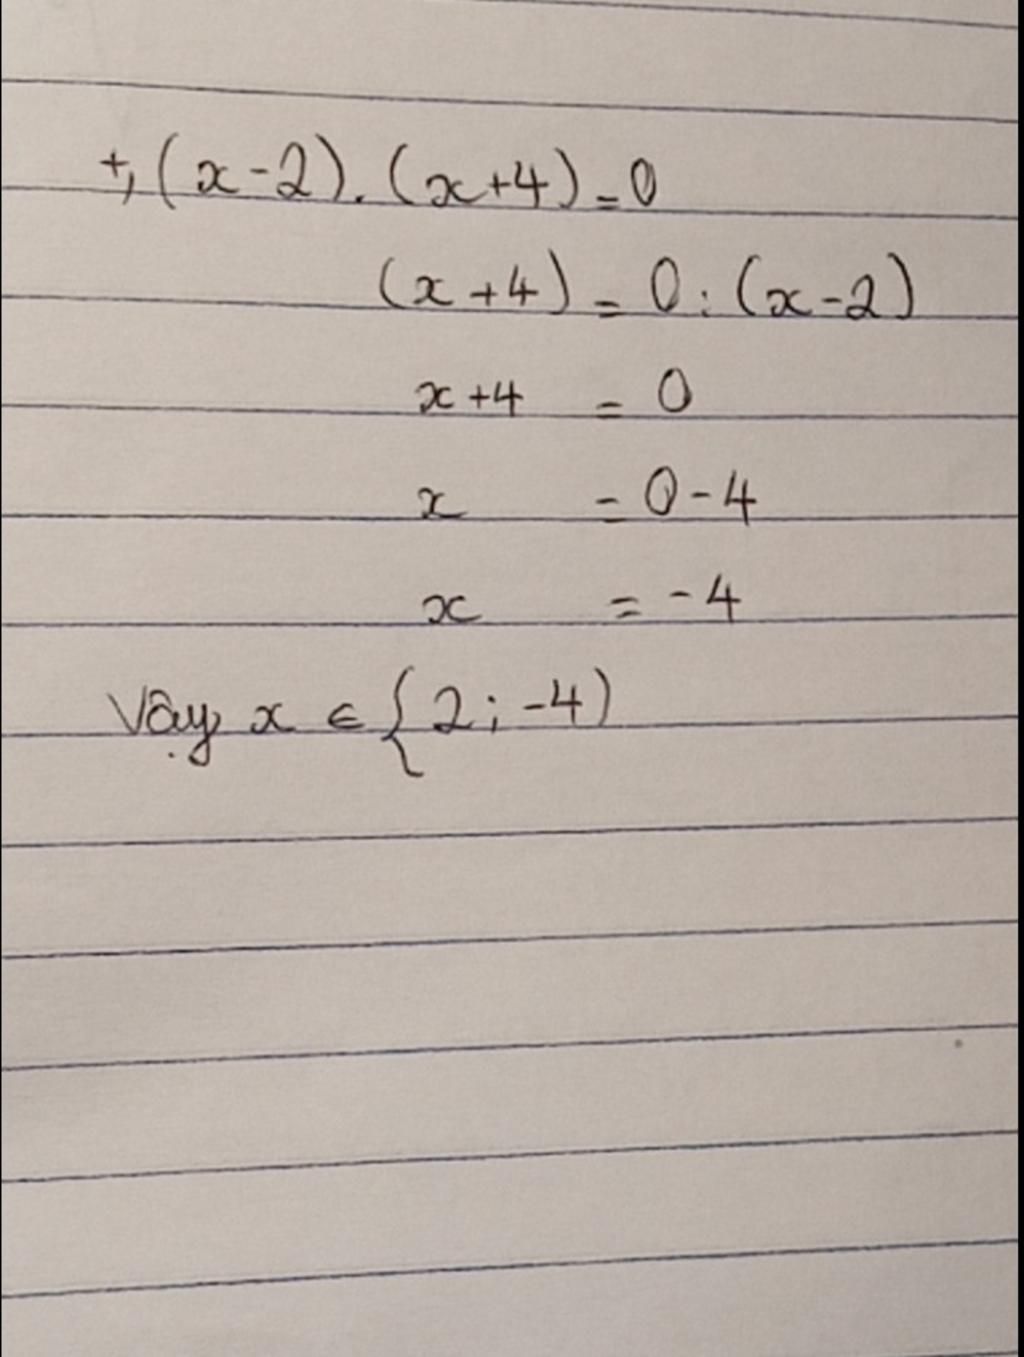 +, (x-2). (x+4) = 0
(x+4) = 0 : (x-2)
x+4 = 0
x = 0-4
x = -4
Vậy x ∈ {2; -4)